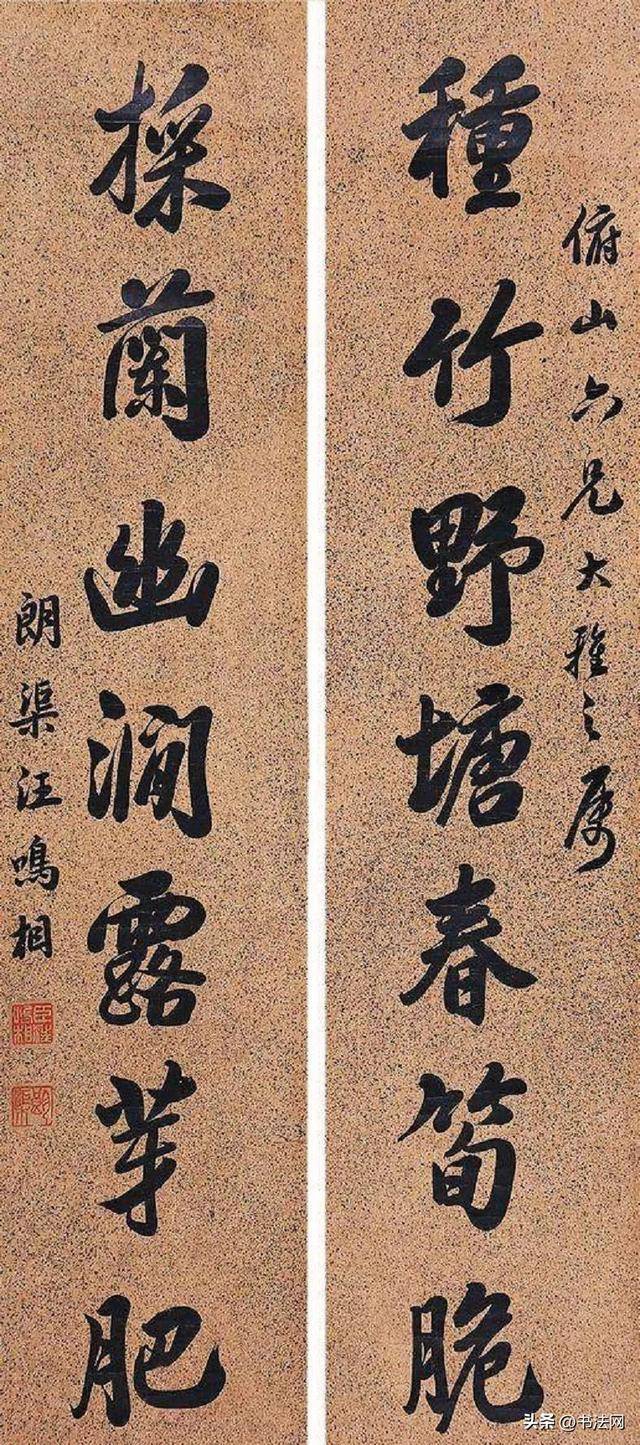 俯山六兄大雅之属
種竹野塘春筍脆
採蘭幽澗露芽肥
朗渠汪鳴相
头条 @书法网